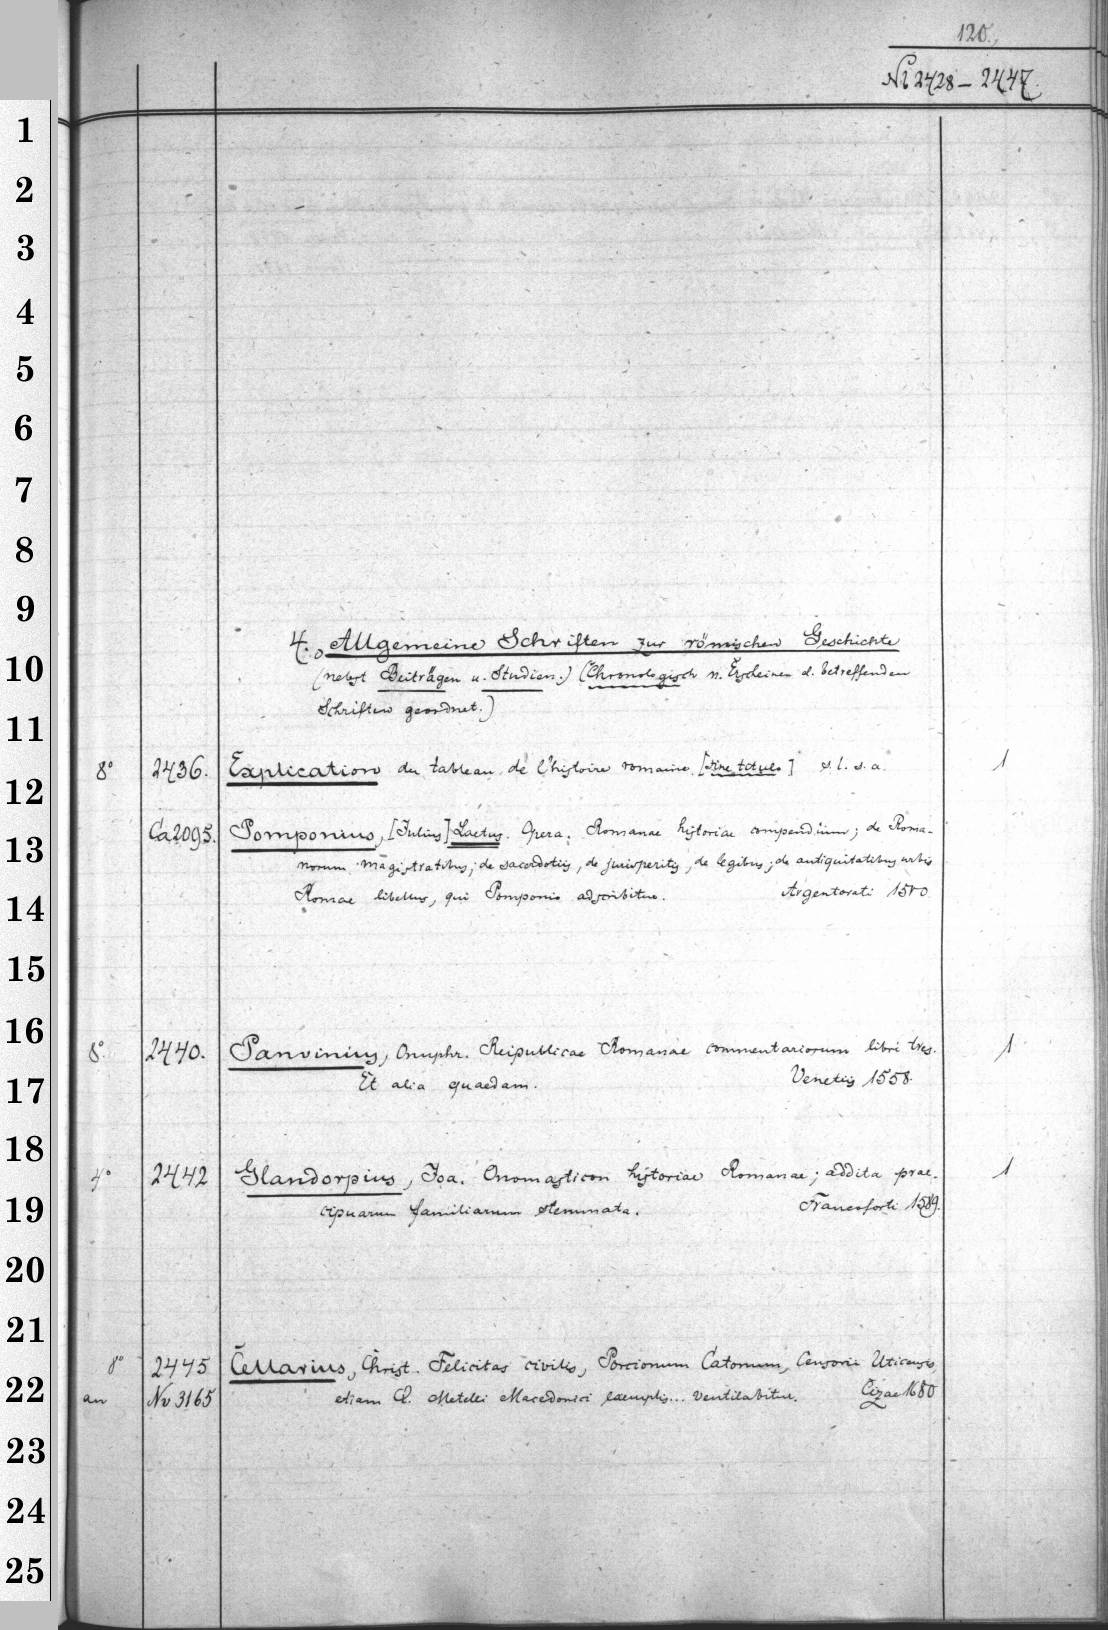 120.
Ni 2428 – 2447.
1
2
3
4
5
6
7
8
9
10
11
12
13
14
15
16
17
18
19
20
21
22
23
24
25
4. Allgemeine Schriften zur römischen Geschichte
(nebst Beiträgen u. Studien.) (Chronologisch n. Erscheinen d. betreffenden
Schriften geordnet.)
8° 2436. Explication du tableau de l'histoire romaine [sine titulo] s. l. s. a. 1
Ca 2095. Pomponius, [Julius] Laetus. Opera. Romanae historiae compendium; de Roma-
norum magistratibus; de sacerdotiis, de jurisperitis, de legibus; de antiquitatibus urbis
Romae libellus, qui Pomponio adscribitur. Argentorati 1510
8° 2440. Panvinius, Onuphr. Reipublicae Romanae commentariorum libri tres. 1
Et alia quaedam. Venetiis 1558.
4° 2442 Glandorpius, Joa. Onomasticon historiae Romanae; addita prae- 1
cipuarum familiarum stemmata. Francoforti 1589.
8° 2445 Cellarius, Christ. Felicitas civilis, Porcionum Catonum, Censorii Uticensis,
an Nv 3165 etiam Q. Metelli Macedonici exemplis... ventilabitur. Cizae 1680